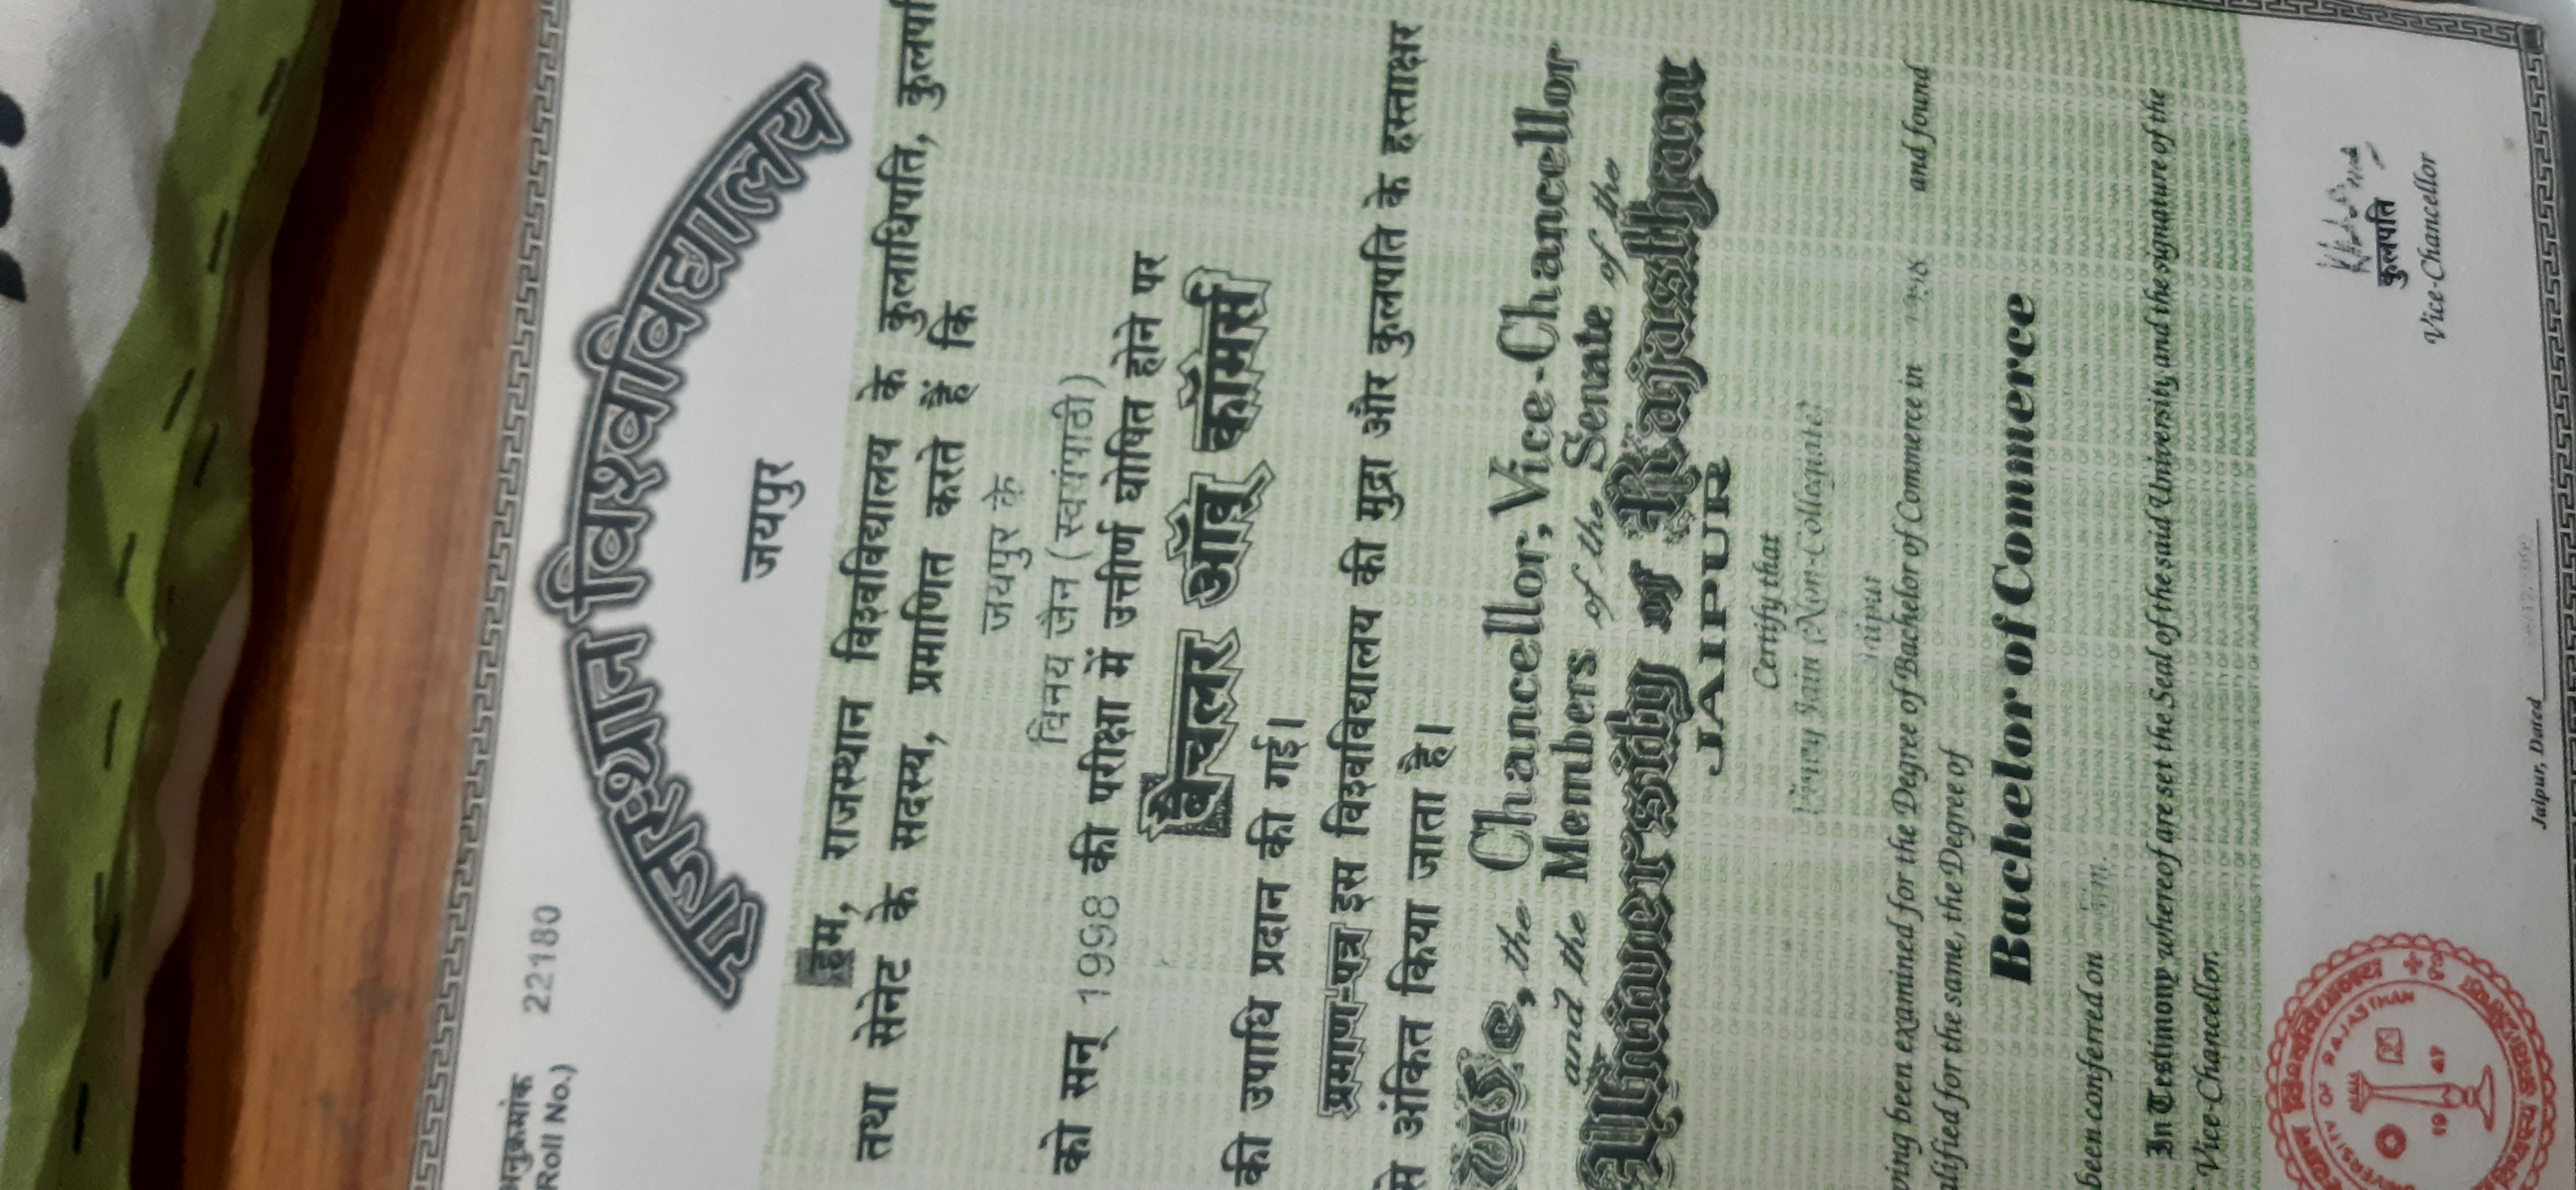 अनुक्रमांक 22180
Roll No.)
राजस्थान विश्वविद्यालय
जयपुर
हम, राजस्थान विश्वविद्यालय के कुलाधिपति, कुलपति
तथा सेनेट के सदस्य, प्रमाणित करते हैं कि
जयपुर के
विनय जैन (स्वयंपाठी)
को सन् 1998 की परीक्षा में उत्तीर्ण घोषित होने पर
बैचलर ऑव् कॉमर्स
की उपाधि प्रदान की गई।
प्रमाण-पत्र इस विश्वविद्यालय की मुद्रा और कुलपति के हस्ताक्षर
से अंकित किया जाता है।
We, the Chancellor, Vice-Chancellor
and the Members of the Senate of the
University of Rajasthan
JAIPUR
Certify that
Vinay Jain (Non-Collegiate)
Jaipur
ving been examined for the Degree of Bachelor of Commerce in 1998 and found
alified for the same, the Degree of
Bachelor of Commerce
been conferred on him.
In Testimony whereof are set the Seal of the said University and the signature of the
Vice-Chancellor.
UNIVERSITY OF RAJASTHAN
19 47
कुलपति
Vice-Chancellor
Jaipur, Dated